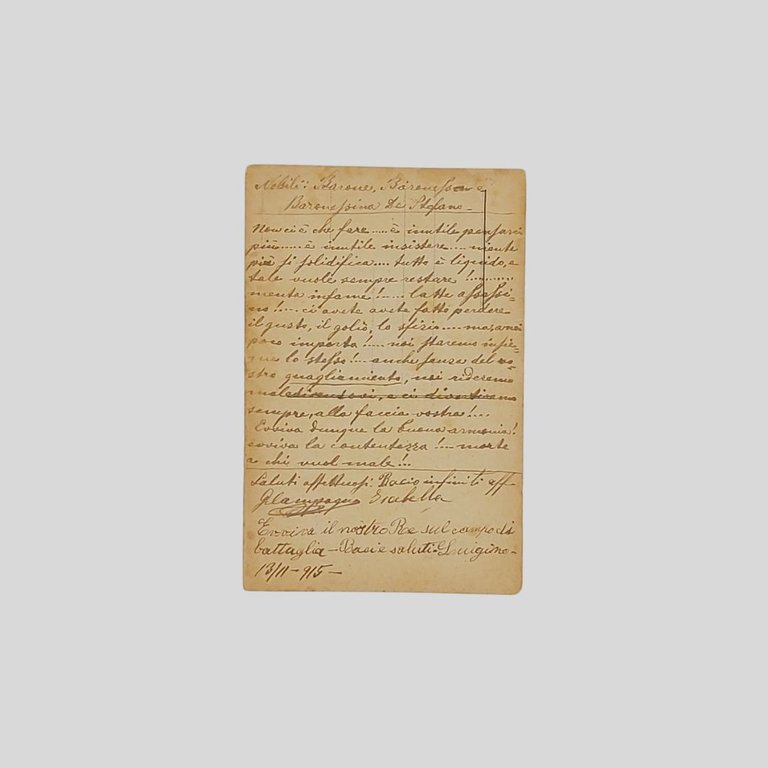 Nobili: Barone, Baronessa e
Baronessina De Stefano -
Non ci è che fare ..... è inutile pensarci
più ..... è inutile insistere .... niente
più si solidifica .... tutto è liquido, e
tale vuole sempre restare! ..........
menta infame! ..... latte assassi-
no! .... ci avete avete fatto perdere
il gusto, il golio, lo sfizio ....
poco importa! .... noi staremo
lo stesso! ... anche senza del vo-
stro quagliamento, noi rideremo
e ci divertiremo
sempre, alla faccia vostra! ...
Evviva dunque la buona armonia!
evviva la contentezza! ... morte
a chi vuol male! ...
Saluti affettuosi: Bacio infiniti aff
Isabella
Evviva il nostro Re sul campo di
battaglia - Baci e saluti Luigino -
13/11 - 915 -